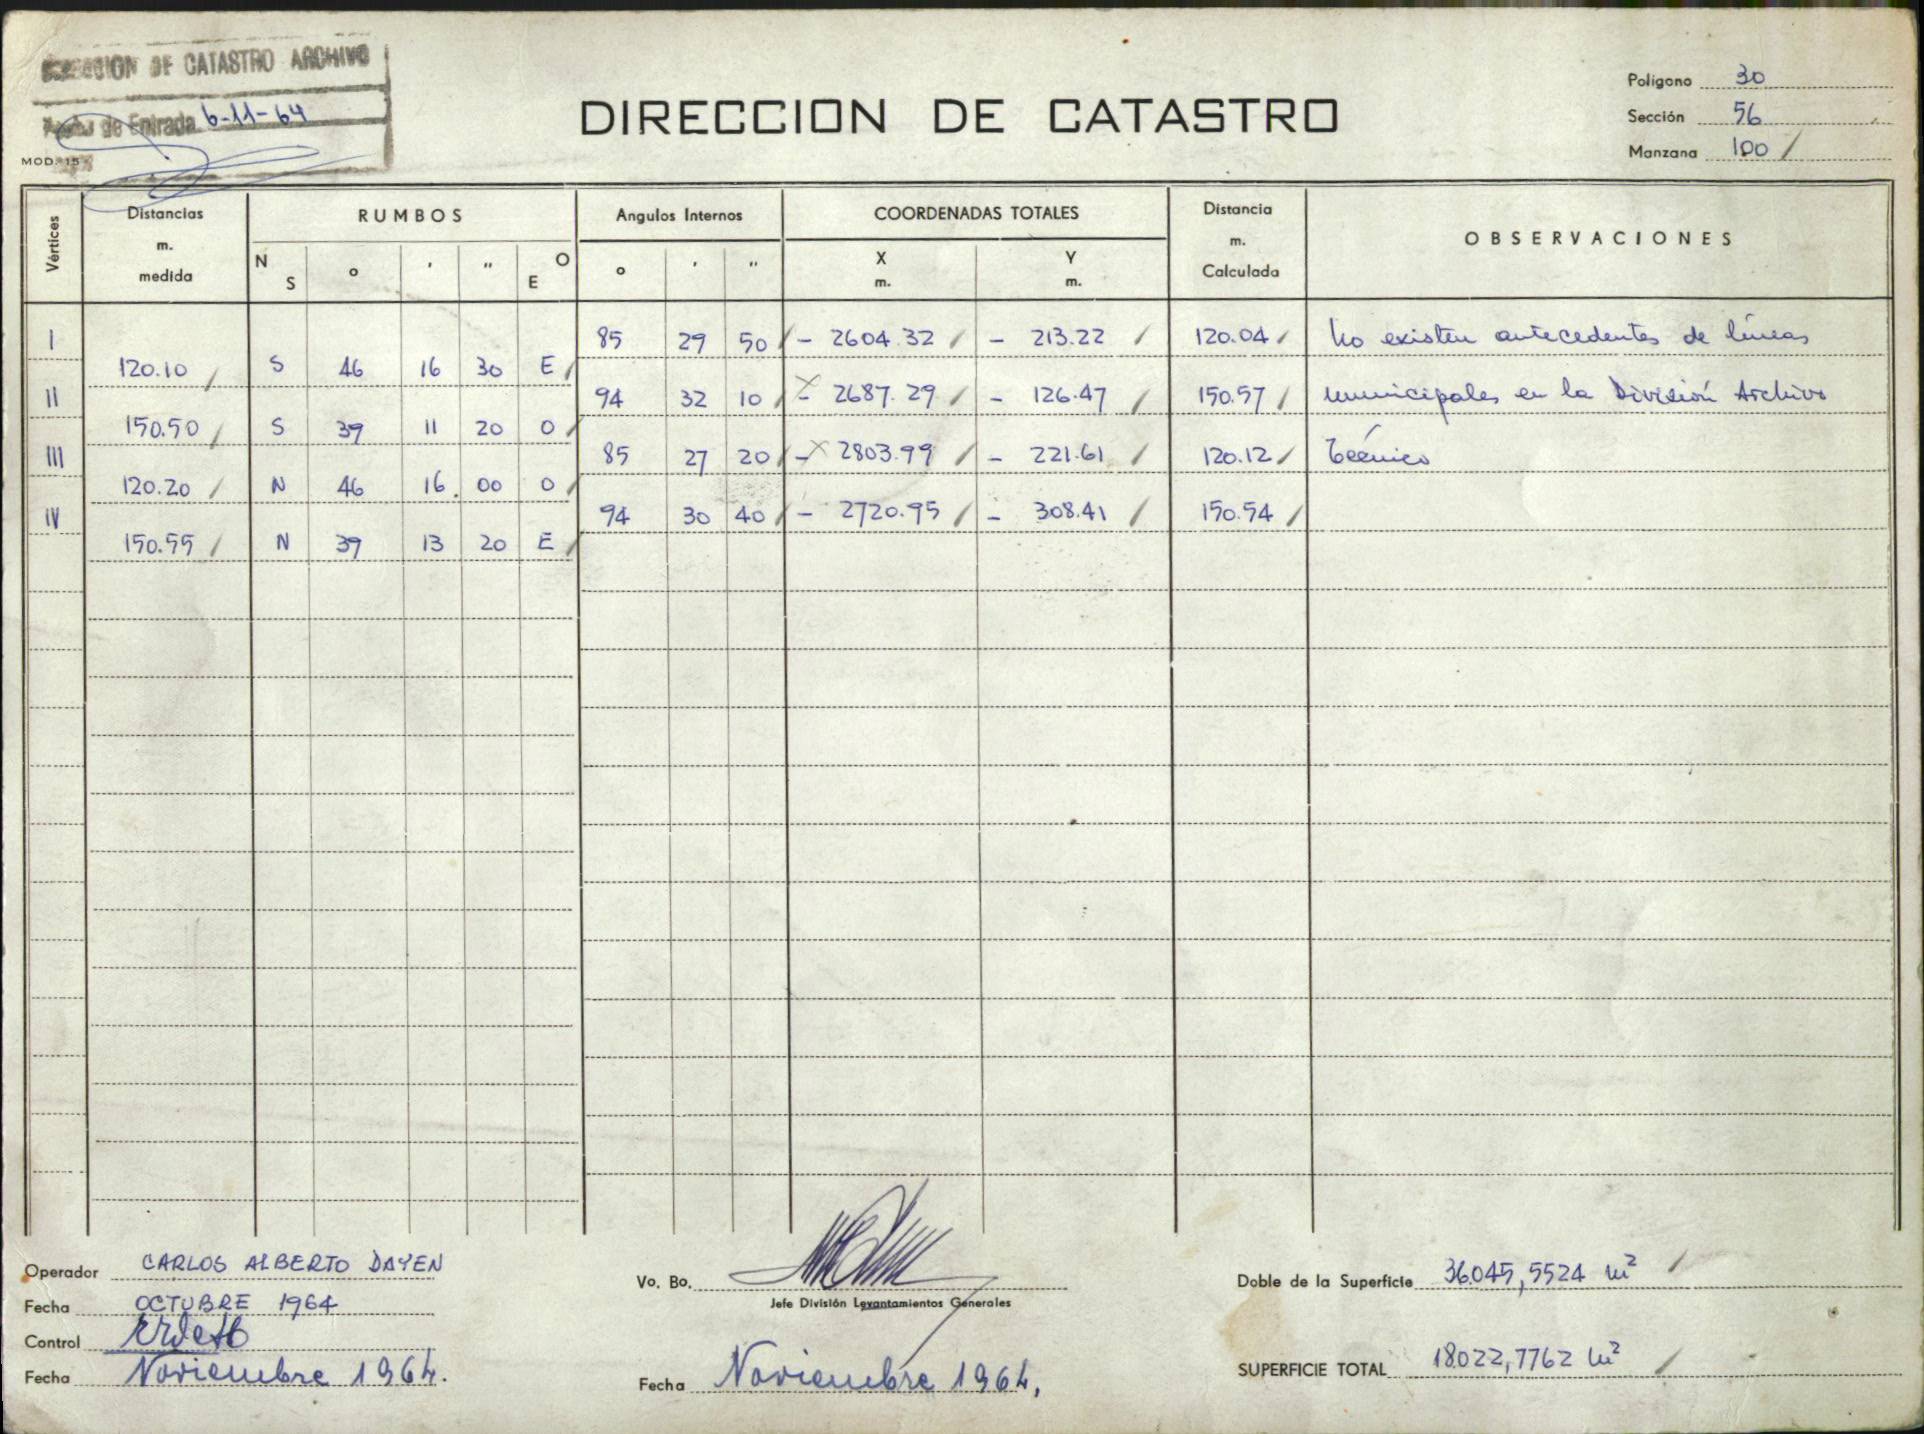 DIRECCION DE CATASTRO ARCHIVO
Fecha de Entrada 6-11-64
MOD. 15
DIRECCION DE CATASTRO
Polígono 30
Sección 56
Manzana 100
Vértices
Distancias m. medida
RUMBOS
N S ° ' " O E
Angulos Internos
° ' "
COORDENADAS TOTALES
X m. Y m.
Distancia m. Calculada
OBSERVACIONES
I 85 29 50 - 2604.32 - 213.22 120.04 No existen antecedentes de líneas
120.10 S 46 16 30 E
II 94 32 10 - 2687.29 - 126.47 150.57 municipales en la División Archivo
150.50 S 39 11 20 O
III 85 27 20 - 2803.99 - 221.61 120.12 Técnico
120.20 N 46 16 00 O
IV 94 30 40 - 2720.95 - 308.41 150.54
150.55 N 39 13 20 E
Operador CARLOS ALBERTO DAYEN
Fecha OCTUBRE 1964
Control
Fecha Noviembre 1964.
Vo. Bo.
Jefe División Levantamientos Generales
Fecha Noviembre 1964,
Doble de la Superficie 36.045,5524 m²
SUPERFICIE TOTAL 18.022,7762 m²